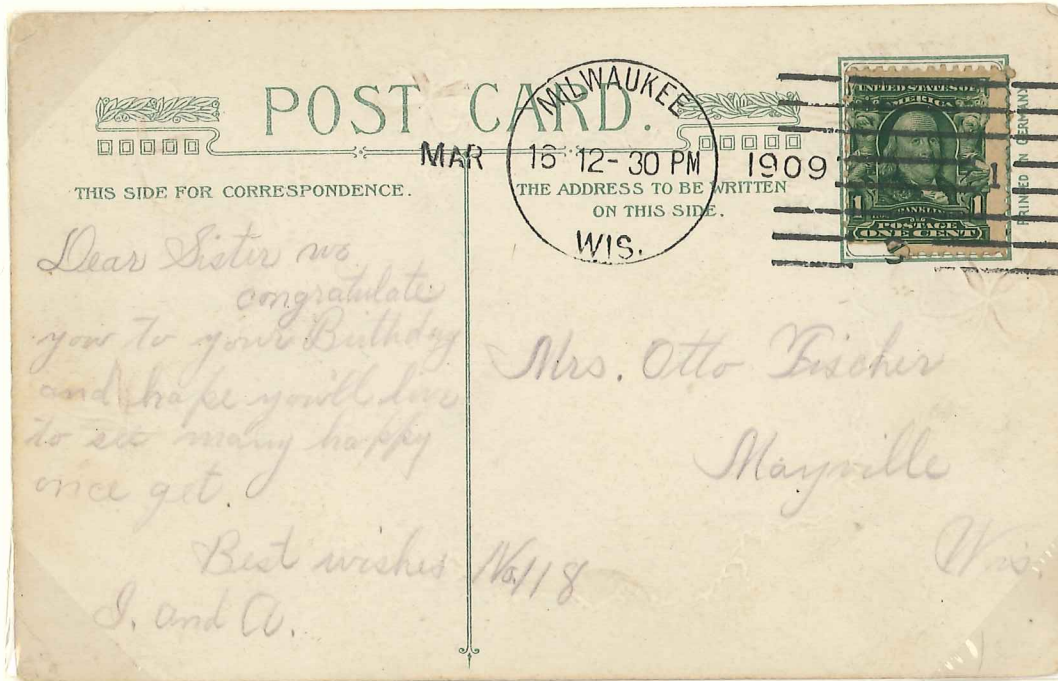 POST CARD.
MILWAUKEE
MAR 16 12-30 PM 1909
WIS.
UNITED STATES OF
1 1
FRANKLIN
POSTAGE
ONE CENT
1
PRINTED IN GERMANY
THIS SIDE FOR CORRESPONDENCE.
THE ADDRESS TO BE WRITTEN
ON THIS SIDE.
Dear Sister we
congratulate
you to your Birthday
and hope you'll live
to see many happy
once get.
Best wishes
I. and A.
No. 118
Mrs. Otto Fischer
Mayville
Wis.